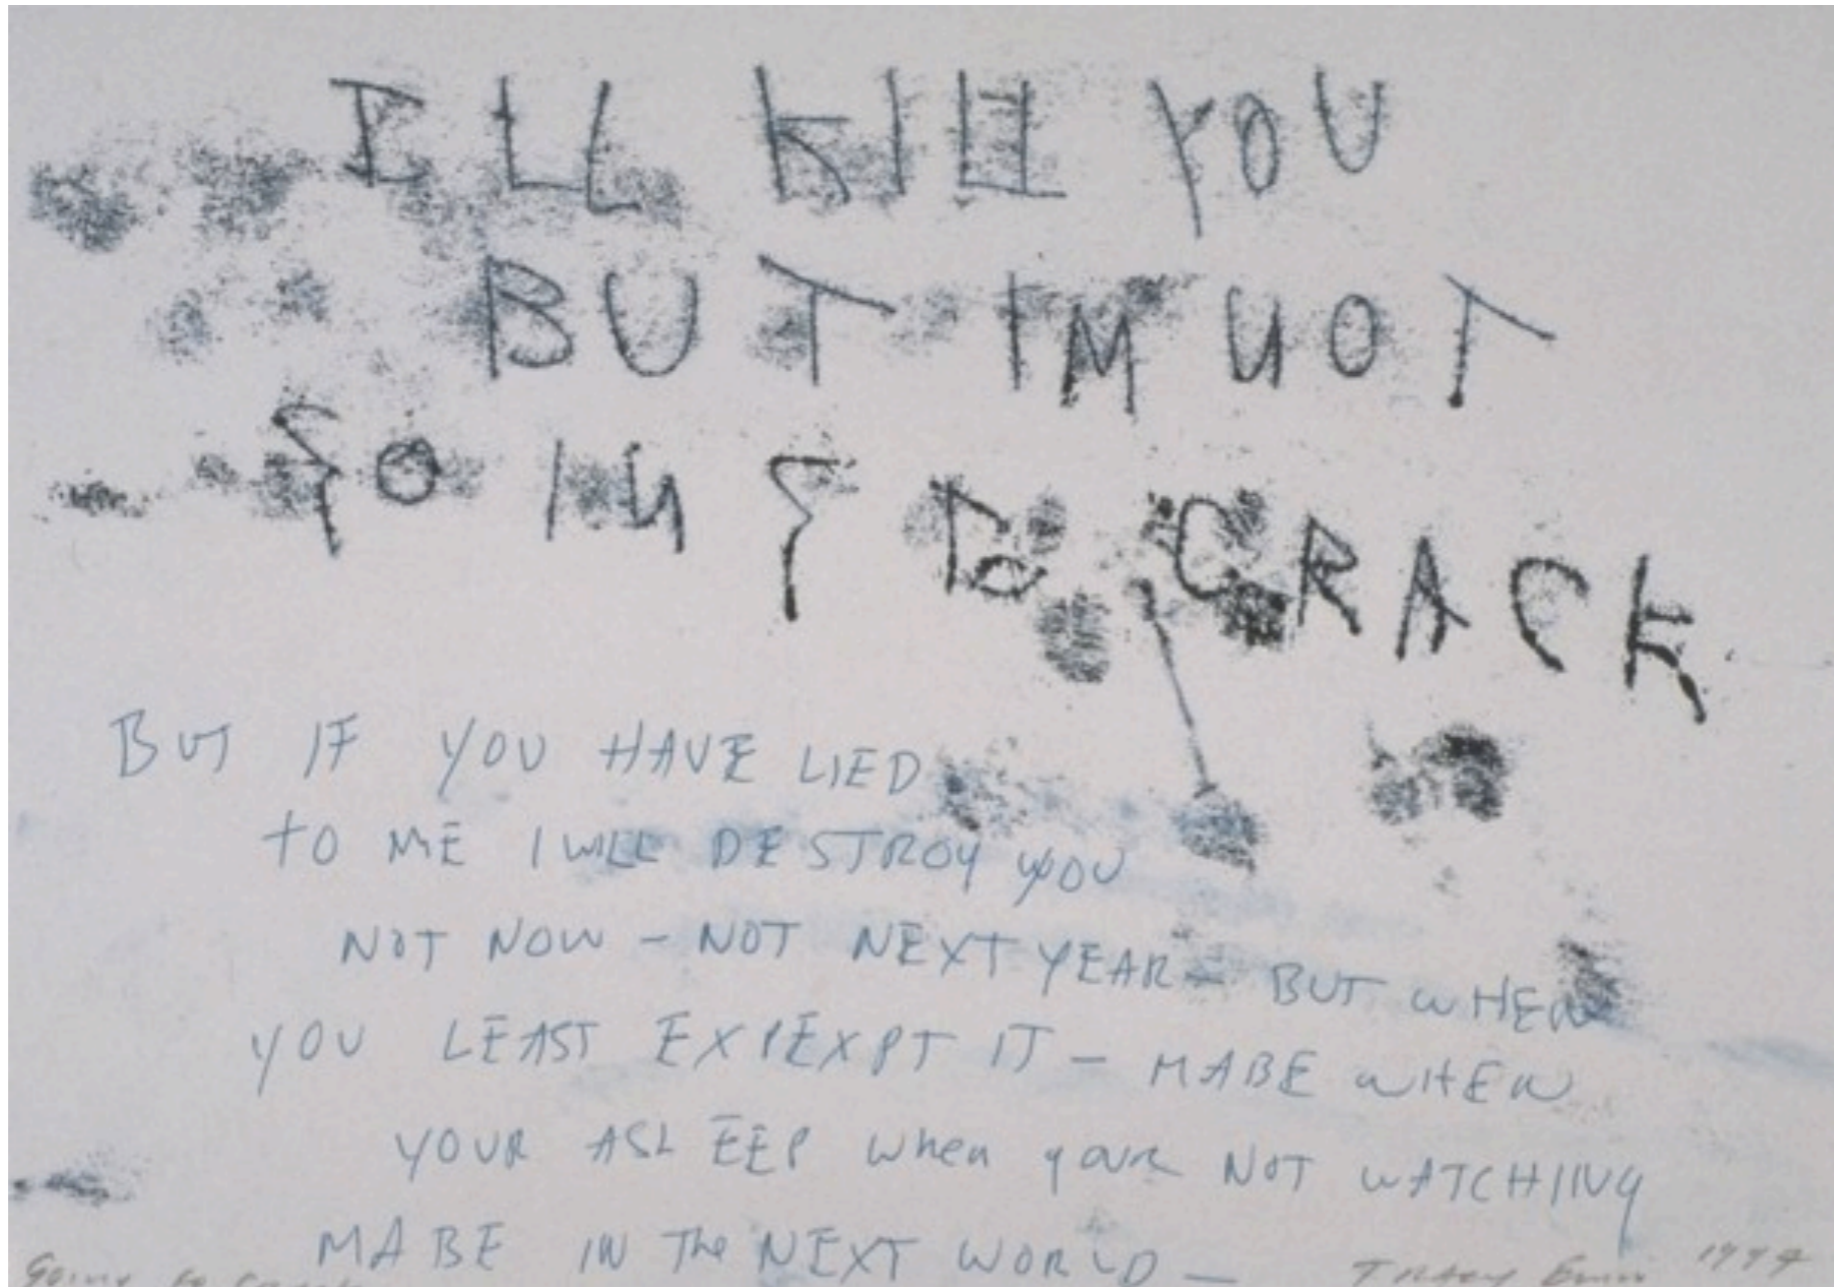 ILL KILL YOU
BUT IM NOT
GOING TO CRACK
BUT IF YOU HAVE LIED
TO ME I WILL DESTROY YOU
NOT NOW – NOT NEXT YEAR – BUT WHEN
YOU LEAST EXPEXPT IT – MABE WHEN
YOUR ASLEEP when your NOT WATCHING
MABE IN The NEXT WORLD –
Going to Crack Tracey Emin 1997